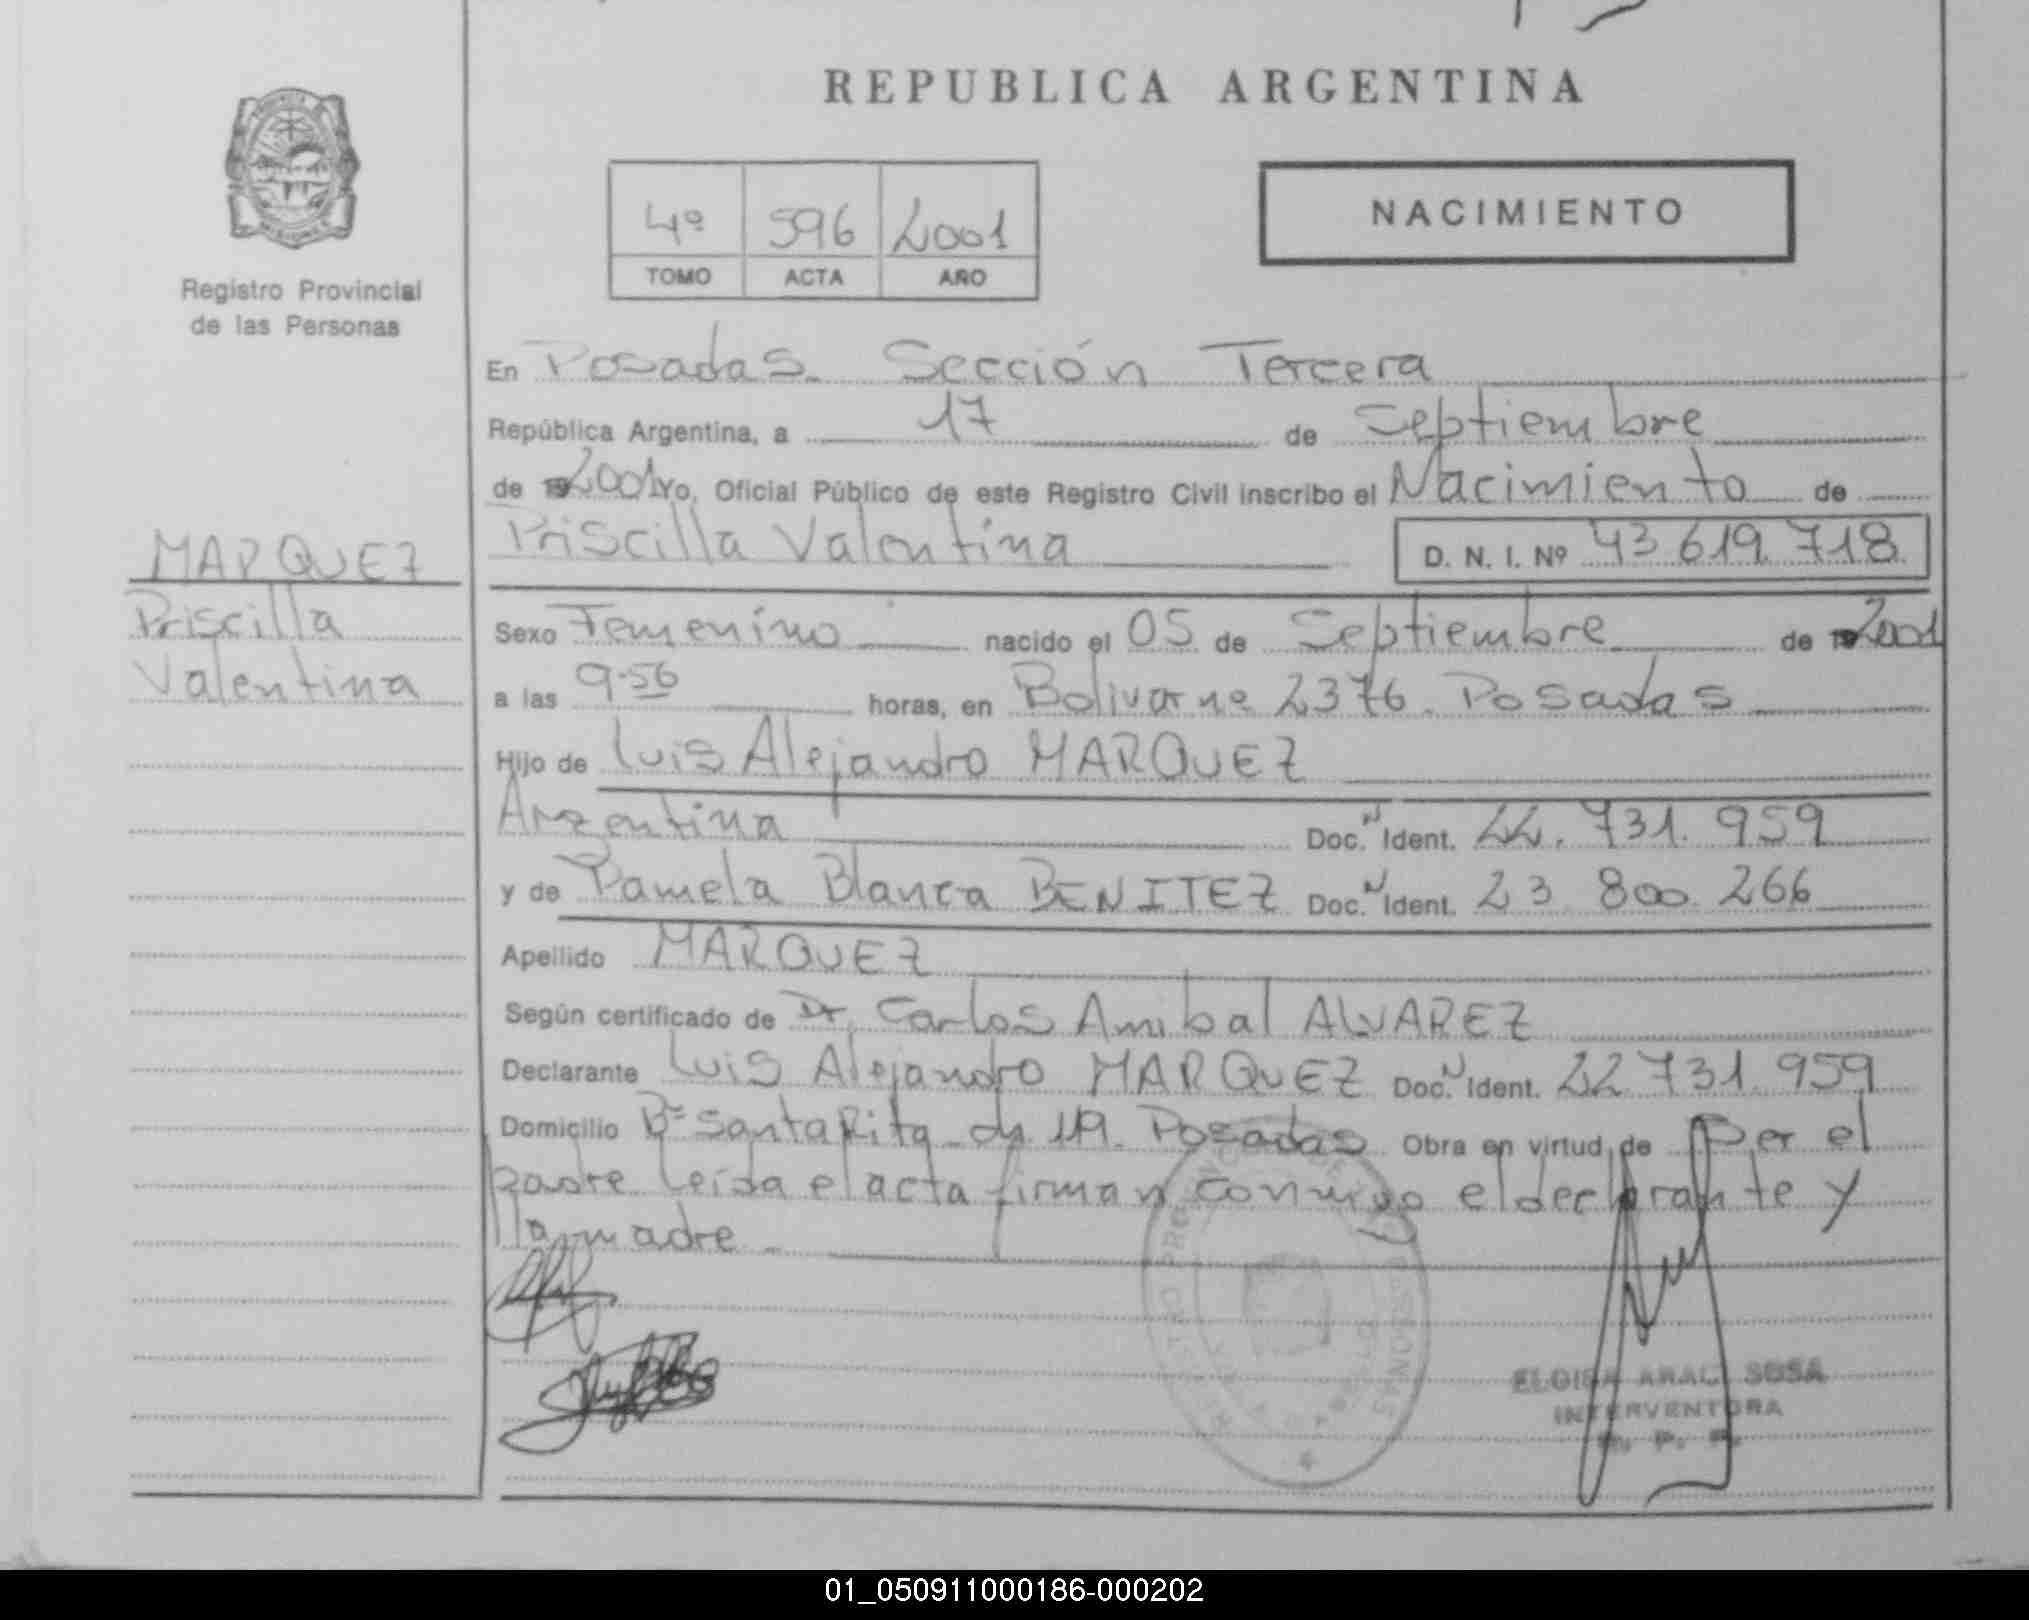 REPUBLICA ARGENTINA
4º 596 2001
TOMO ACTA AÑO
NACIMIENTO
Registro Provincial
de las Personas
En Posadas Sección Tercera
República Argentina, a 17 de Septiembre
de 2001 Yo, Oficial Público de este Registro Civil inscribo el Nacimiento de
Priscilla Valentina D. N. I. Nº 43 619 718
MARQUEZ
Priscilla
Valentina
Sexo Femenino nacido el 05 de Septiembre de 2001
a las 9.56 horas, en Bolivar nº 2376. Posadas
Hijo de Luis Alejandro MARQUEZ
Argentina Doc. N Ident. 22.731.959
y de Pamela Blanca BENITEZ Doc. N Ident. 23 800.266
Apellido MARQUEZ
Según certificado de Dr. Carlos Anibal ALVAREZ
Declarante Luis Alejandro MARQUEZ Doc. N Ident. 22 731.959
Domicilio Bº Santa Rita 119. Posadas Obra en virtud de Ser el
padre Leída el acta firman conmigo el declarante y
la madre
ELOISA ARACI SOSA
INTERVENTORA
R. P. P.
01_050911000186-000202